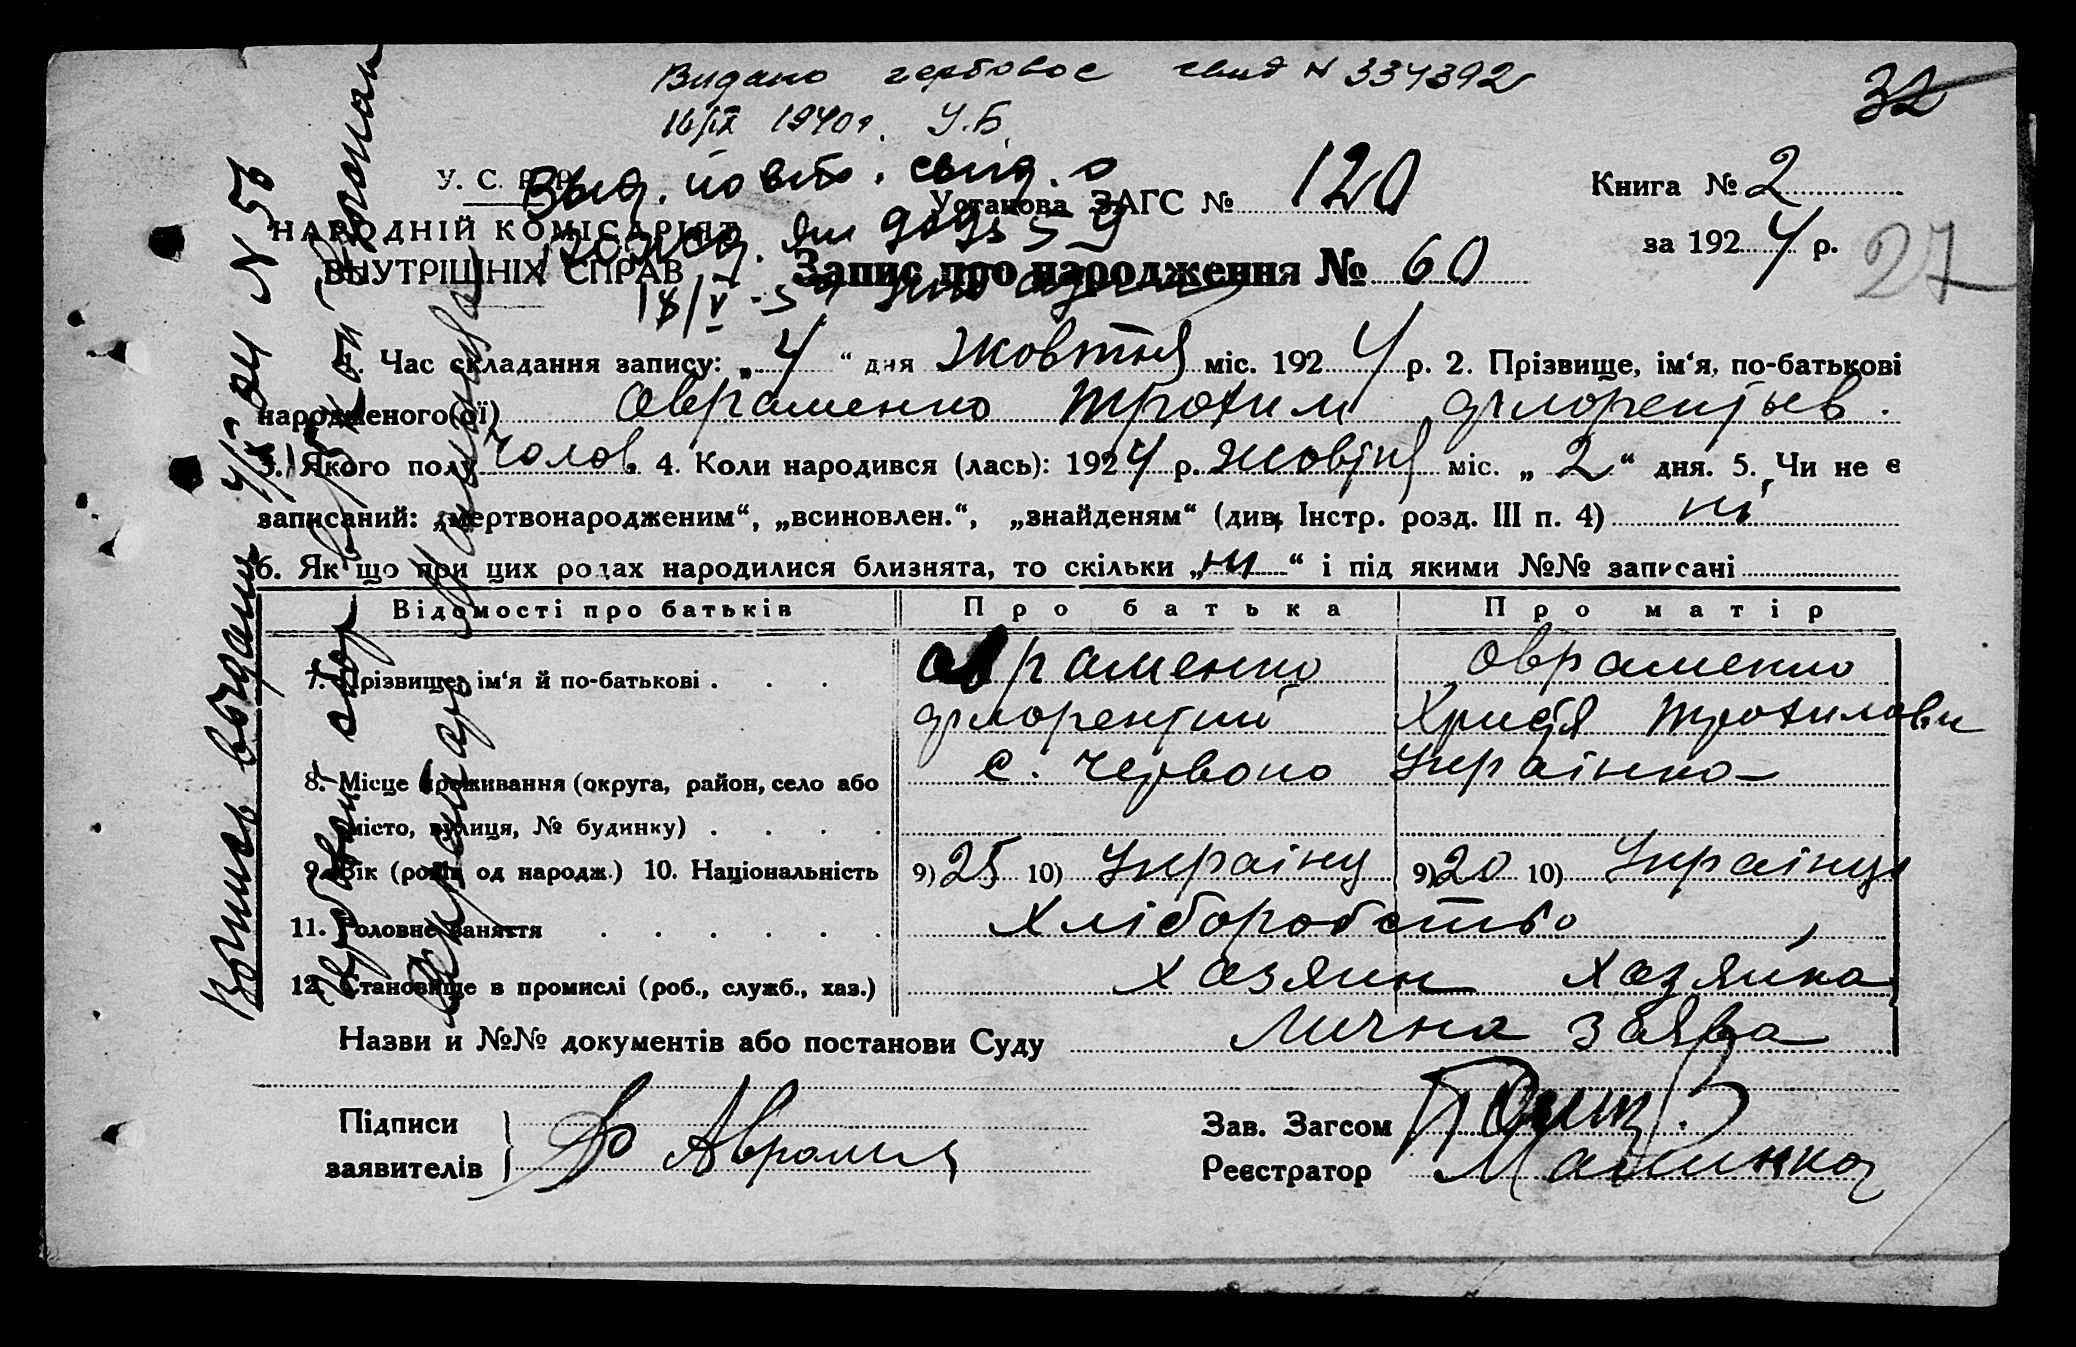 Видано гербовое свид № 334392
16/IX 1940 г. У.Б.
32
У. С. Р. Р.
НАРОДНІЙ КОМІСАРІЯТ
ВНУТРІШНІХ СПРАВ
Выд. повто. свид. о
Установа ЗАГС № 120
Книга № 2
за 1924 р.
27
Запис про народження № 60
18/V
1. Час складання запису: „4“ дня Жовтня міс. 1924 р. 2. Прізвище, ім‘я, по-батькові
народженого(ої) Авраменко Трохим Флорентьев.
3. Якого полу чолов. 4. Коли народився (лась): 1924 р. жовтня міс. „2“ дня. 5. Чи не є
записаний: „мертвонародженим“, „всиновлен.“, „знайденям“ (див. Інстр. розд. III п. 4) ні
6. Як що при цих родах народилися близнята, то скільки „ні“ і під якими №№ записані
Відомості про батьків Про батька Про матір
7. Прізвище, ім‘я й по-батькові . . . Авраменко Авраменко
Флорентий Христя Трохимовн
8. Місце проживання (округа, район, село або с. Червоно Українка
місто, вулиця, № будинку) . . . .
9. Вік (років од народж.) 10. Національність 9) 25 10) Українц 9) 20 10) Українц
11. Головне заняття . . . . . . Хліборобство
12. Становище в промислі (роб., служб., хаз.) хазяин хазяйка
Назви и №№ документів або постанови Суду Лична заява
Підписи
заявителів
Зав. Загсом
Реєстратор Малинка